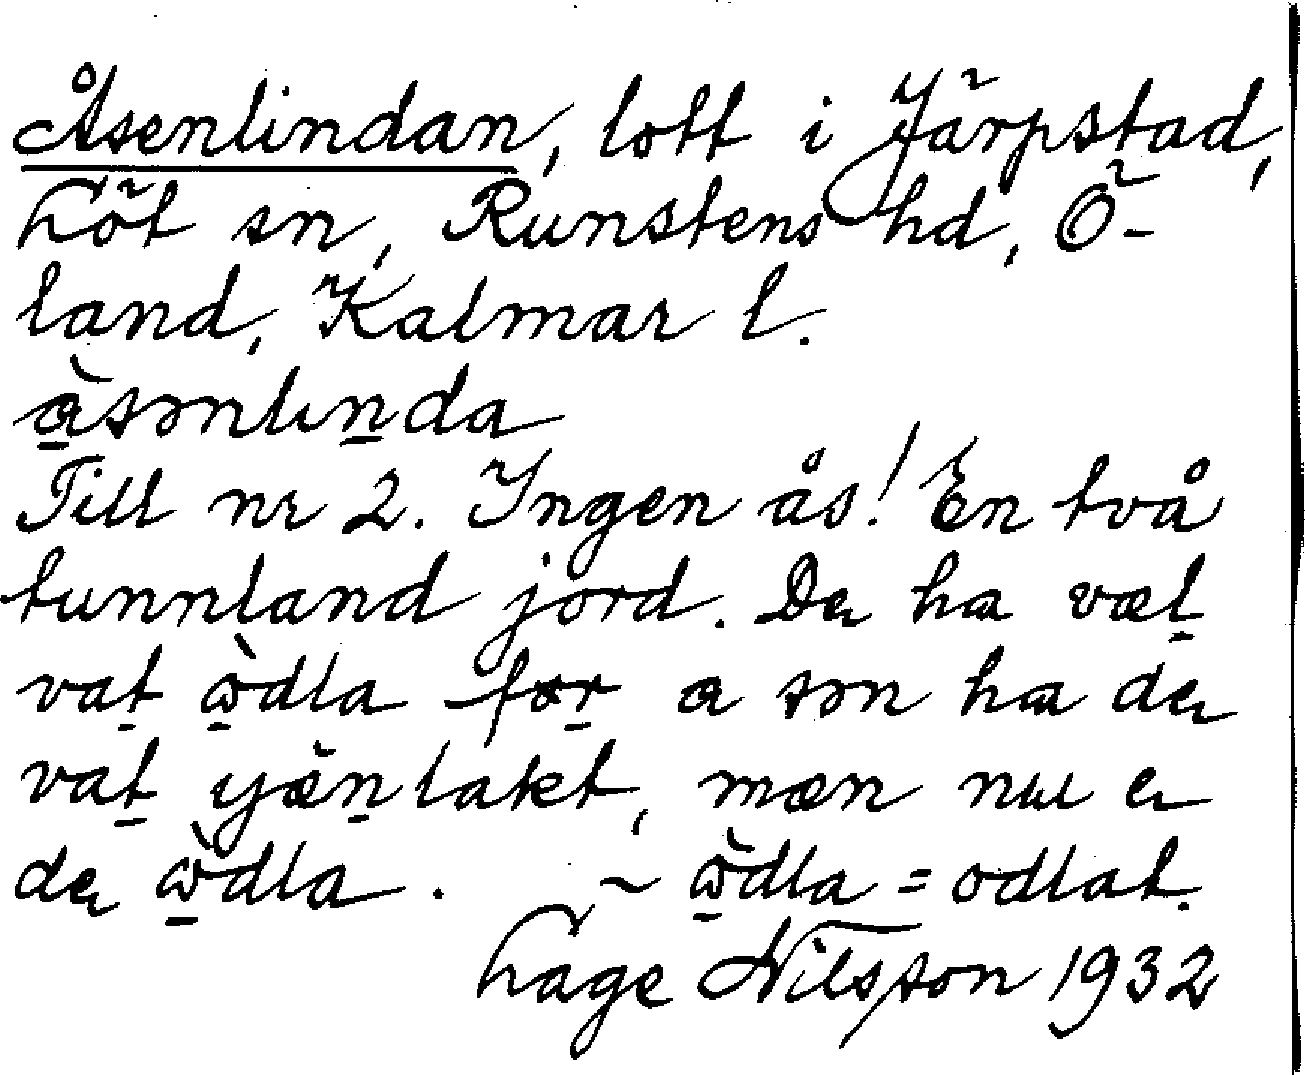 Åsenlindan, lott i Järpstad,
Löt sn, Runstens hd, Ö-
land, Kalmar l.
à̠sənlın̠da
Till nr 2. Ingen ås! En två
tunnland jord. De ha væl̠
vat̠ ɷ̠̀dla før̠ a sən ha de
vat̠ yæ̀n̠lakt, mæn nɯ e
de ɷ̠̀dla. ~ ɷ̠̀dla = odlat.
Lage Nilsson 1932